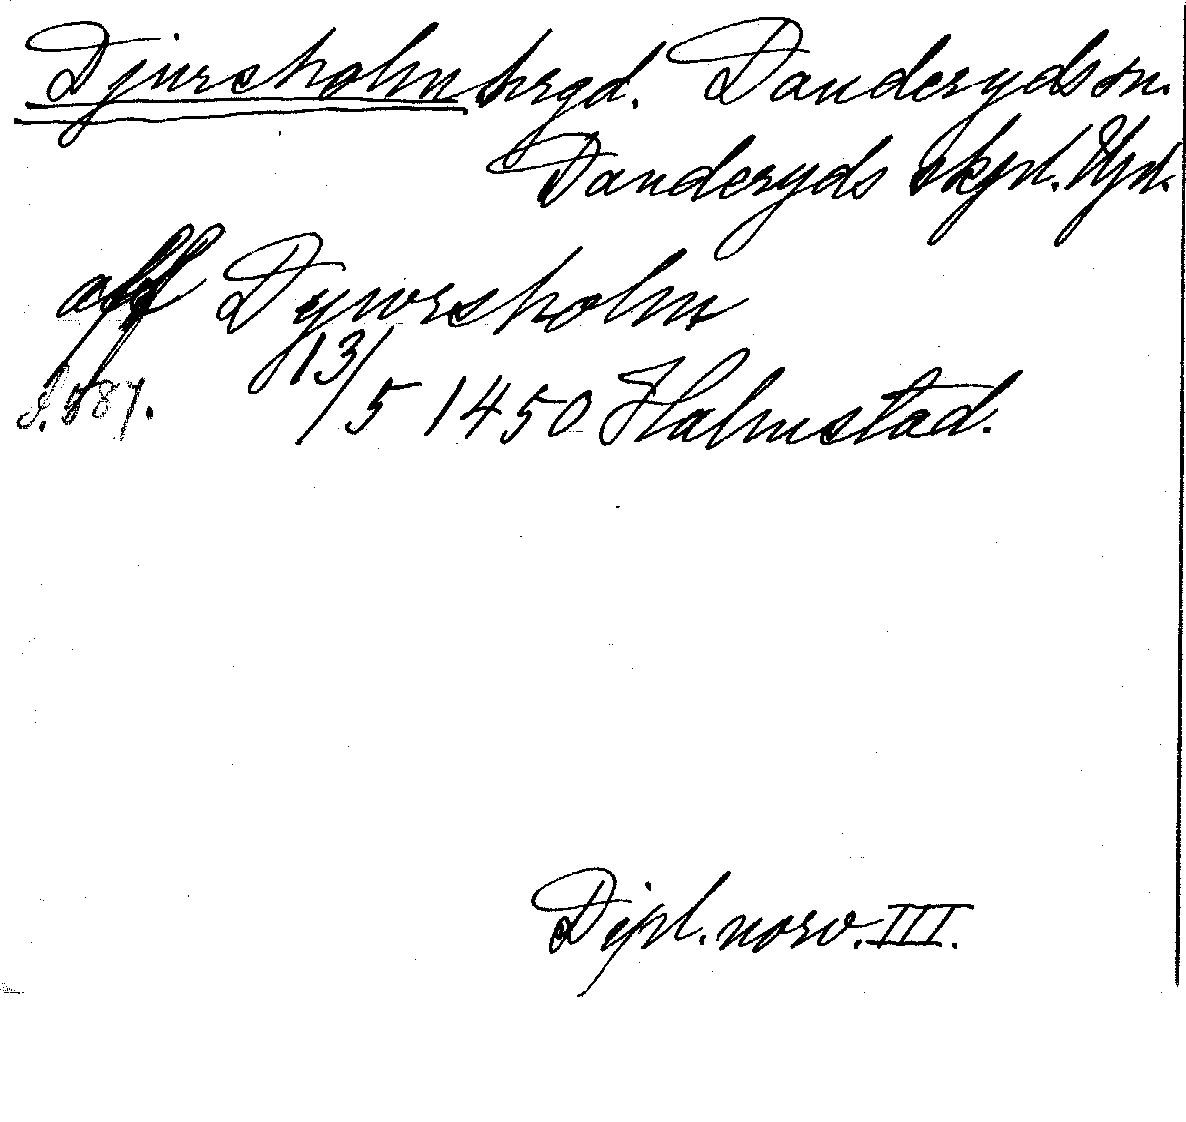 Djursholm hrgd. Danderyds sn.
Danderyds skpl. Upl.
aff Dywrsholm
S. 587. 13/5 1450 Halmstad.
Dipl. norv. III.